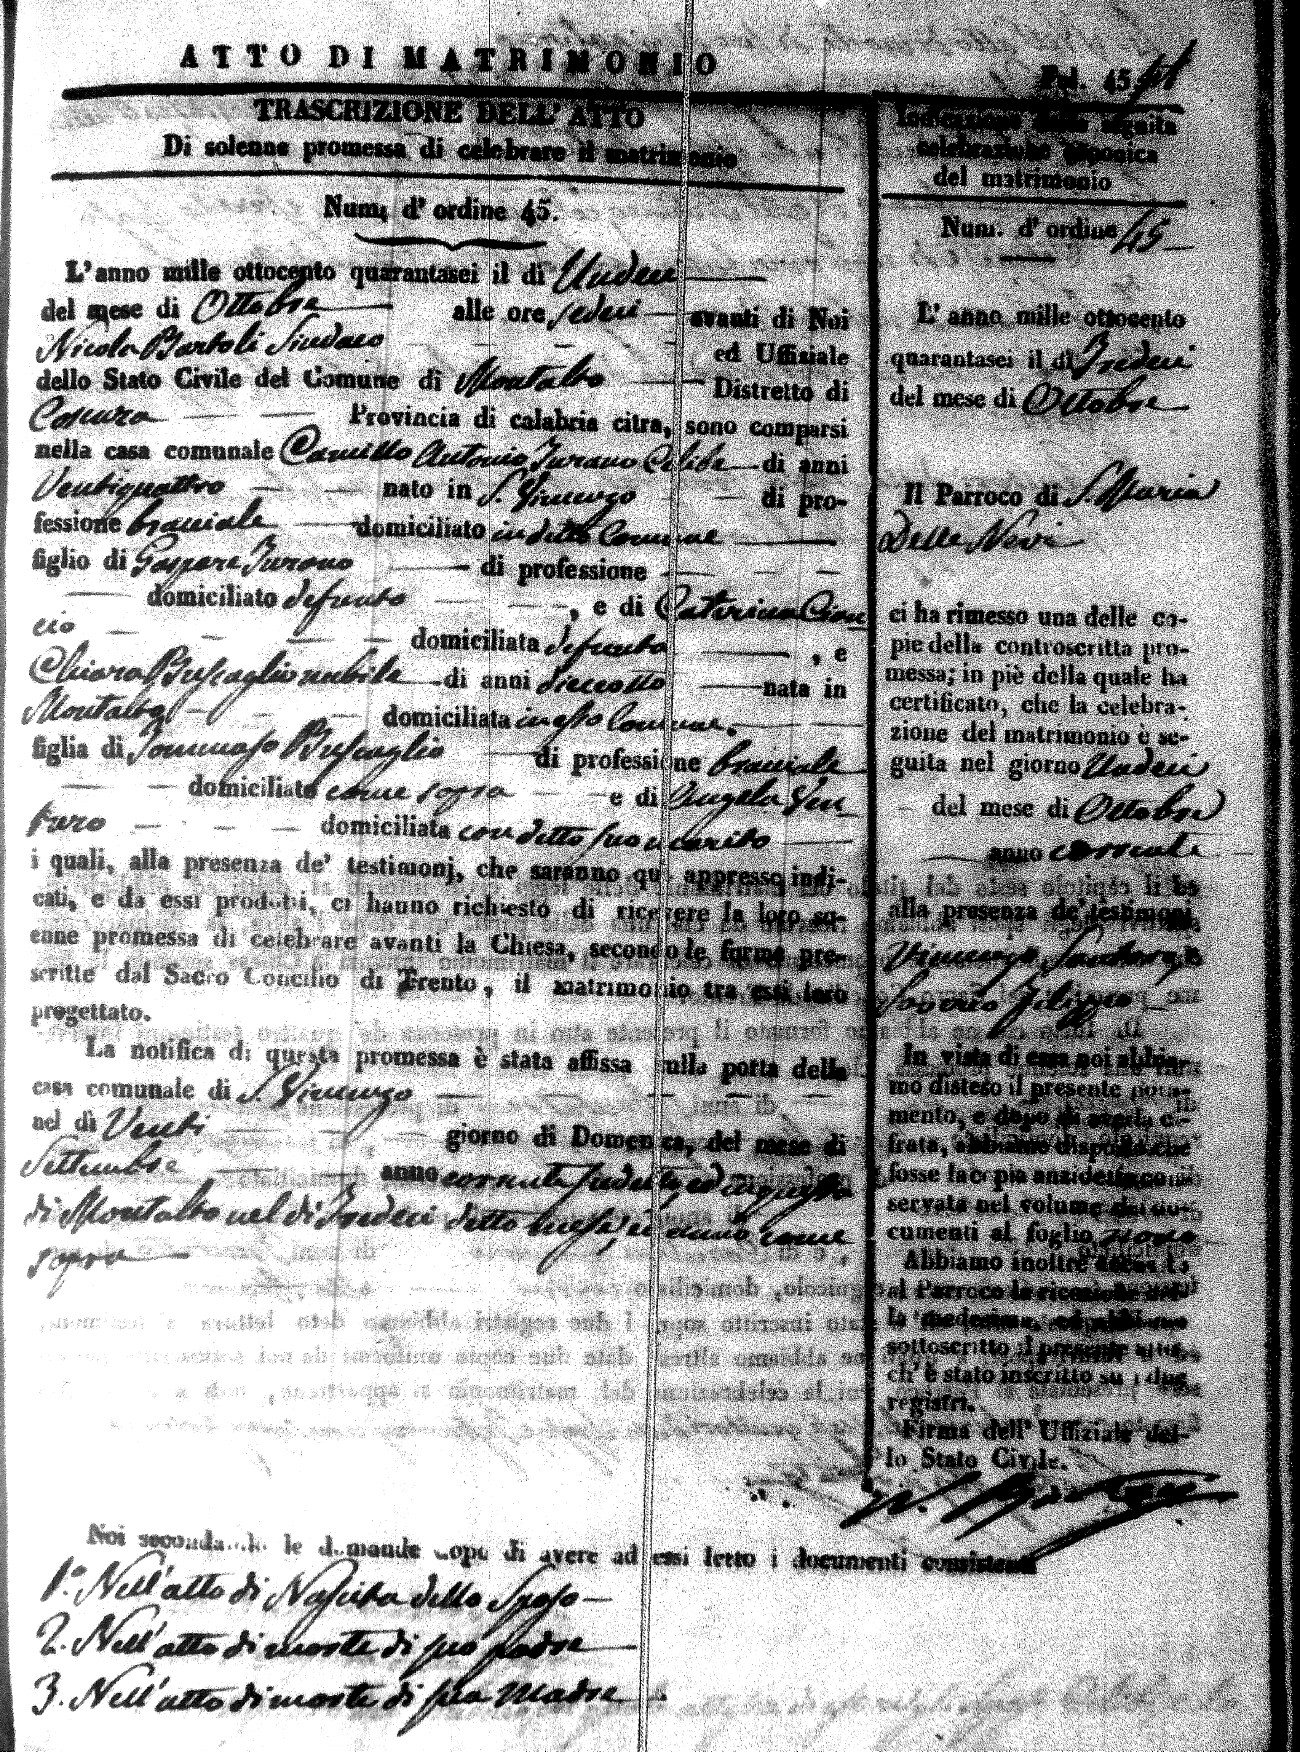 ATTO DI MATRIMONIO
Fol. 45
TRASCRIZIONE DELL' ATTO
Di solenne promessa di celebrare il matrimonio
Num. d' ordine 45.
L'anno mille ottocento quarantasei il dì Undeci
del mese di Ottobre alle ore sedeci avanti di Noi
Nicola Bartoli Sindaco ed Uffiziale
dello Stato Civile del Comune di Montalto Distretto di
Cosenza Provincia di calabria citra, sono comparsi
nella casa comunale Camillo Antonio Turano Celibe di anni
Ventiquattro nato in S. Vincenzo di pro-
fessione bracciale domiciliato in detto Comune
figlio di Gaspare Turano di professione
domiciliato defunto, e di Caterina
domiciliata defunta, e
Chiara Buscaglio nubile di anni dieciotto nata in
Montalto domiciliata in esso Comune.
figlia di Tommaso Buscaglio di professione bracciale
domiciliato come sopra e di Angela Ven
turo domiciliata con detto suo marito
i quali, alla presenza de' testimonj, che saranno qui appresso indi-
cati, e da essi prodotti, ci hanno richiesto di ricevere la loro so-
enne promessa di celebrare avanti la Chiesa, secondo le forme pre-
scritte dal Sacro Concilio di Trento, il matrimonio tra essi loro
progettato.
La notifica di questa promessa è stata affissa sulla porta della
casa comunale di S. Vincenzo
nel dì Venti giorno di Domenica, del mese di
Settembre anno corrente sudetto, ed in questa
di Montalto nel dì Tredeci detto mese, ed anno come
sopra
Noi secondando le domande dopo di avere ad essi letto i documenti consistenti
1.° Nell'atto di Nascita dello Sposo
2. Nell'atto di morte di suo padre
3. Nell'atto di morte di sua Madre
Indicazione della seguita
celebrazione canonica
del matrimonio
Num. d' ordine 45
L' anno mille ottocento
quarantasei il dì Tredeci
del mese di Ottobre
Il Parroco di S. Maria
Delle Nevi
ci ha rimesso una delle co-
pie della controscritta pro-
messa; in piè della quale ha
certificato, che la celebra-
zione del matrimonio è se-
guita nel giorno Undeci
del mese di Ottobre
anno corrente
alla presenza de' testimoni
Vincenzo
Saverio Filippo
In vista di essa noi abbia-
mo disteso il presente nota-
mento, e dopo di averla ci-
frata, abbiamo disposto che
fosse la copia anzidetta con-
servata nel volume dei do-
cumenti al foglio nono
Abbiamo inoltre
al Parroco la ricezione del-
la medesima, ed abbiamo
sottoscritto il presente atto,
ch' è stato inscritto su i due
registri.
Firma dell' Uffiziale del-
lo Stato Civile.
N. Bartoli